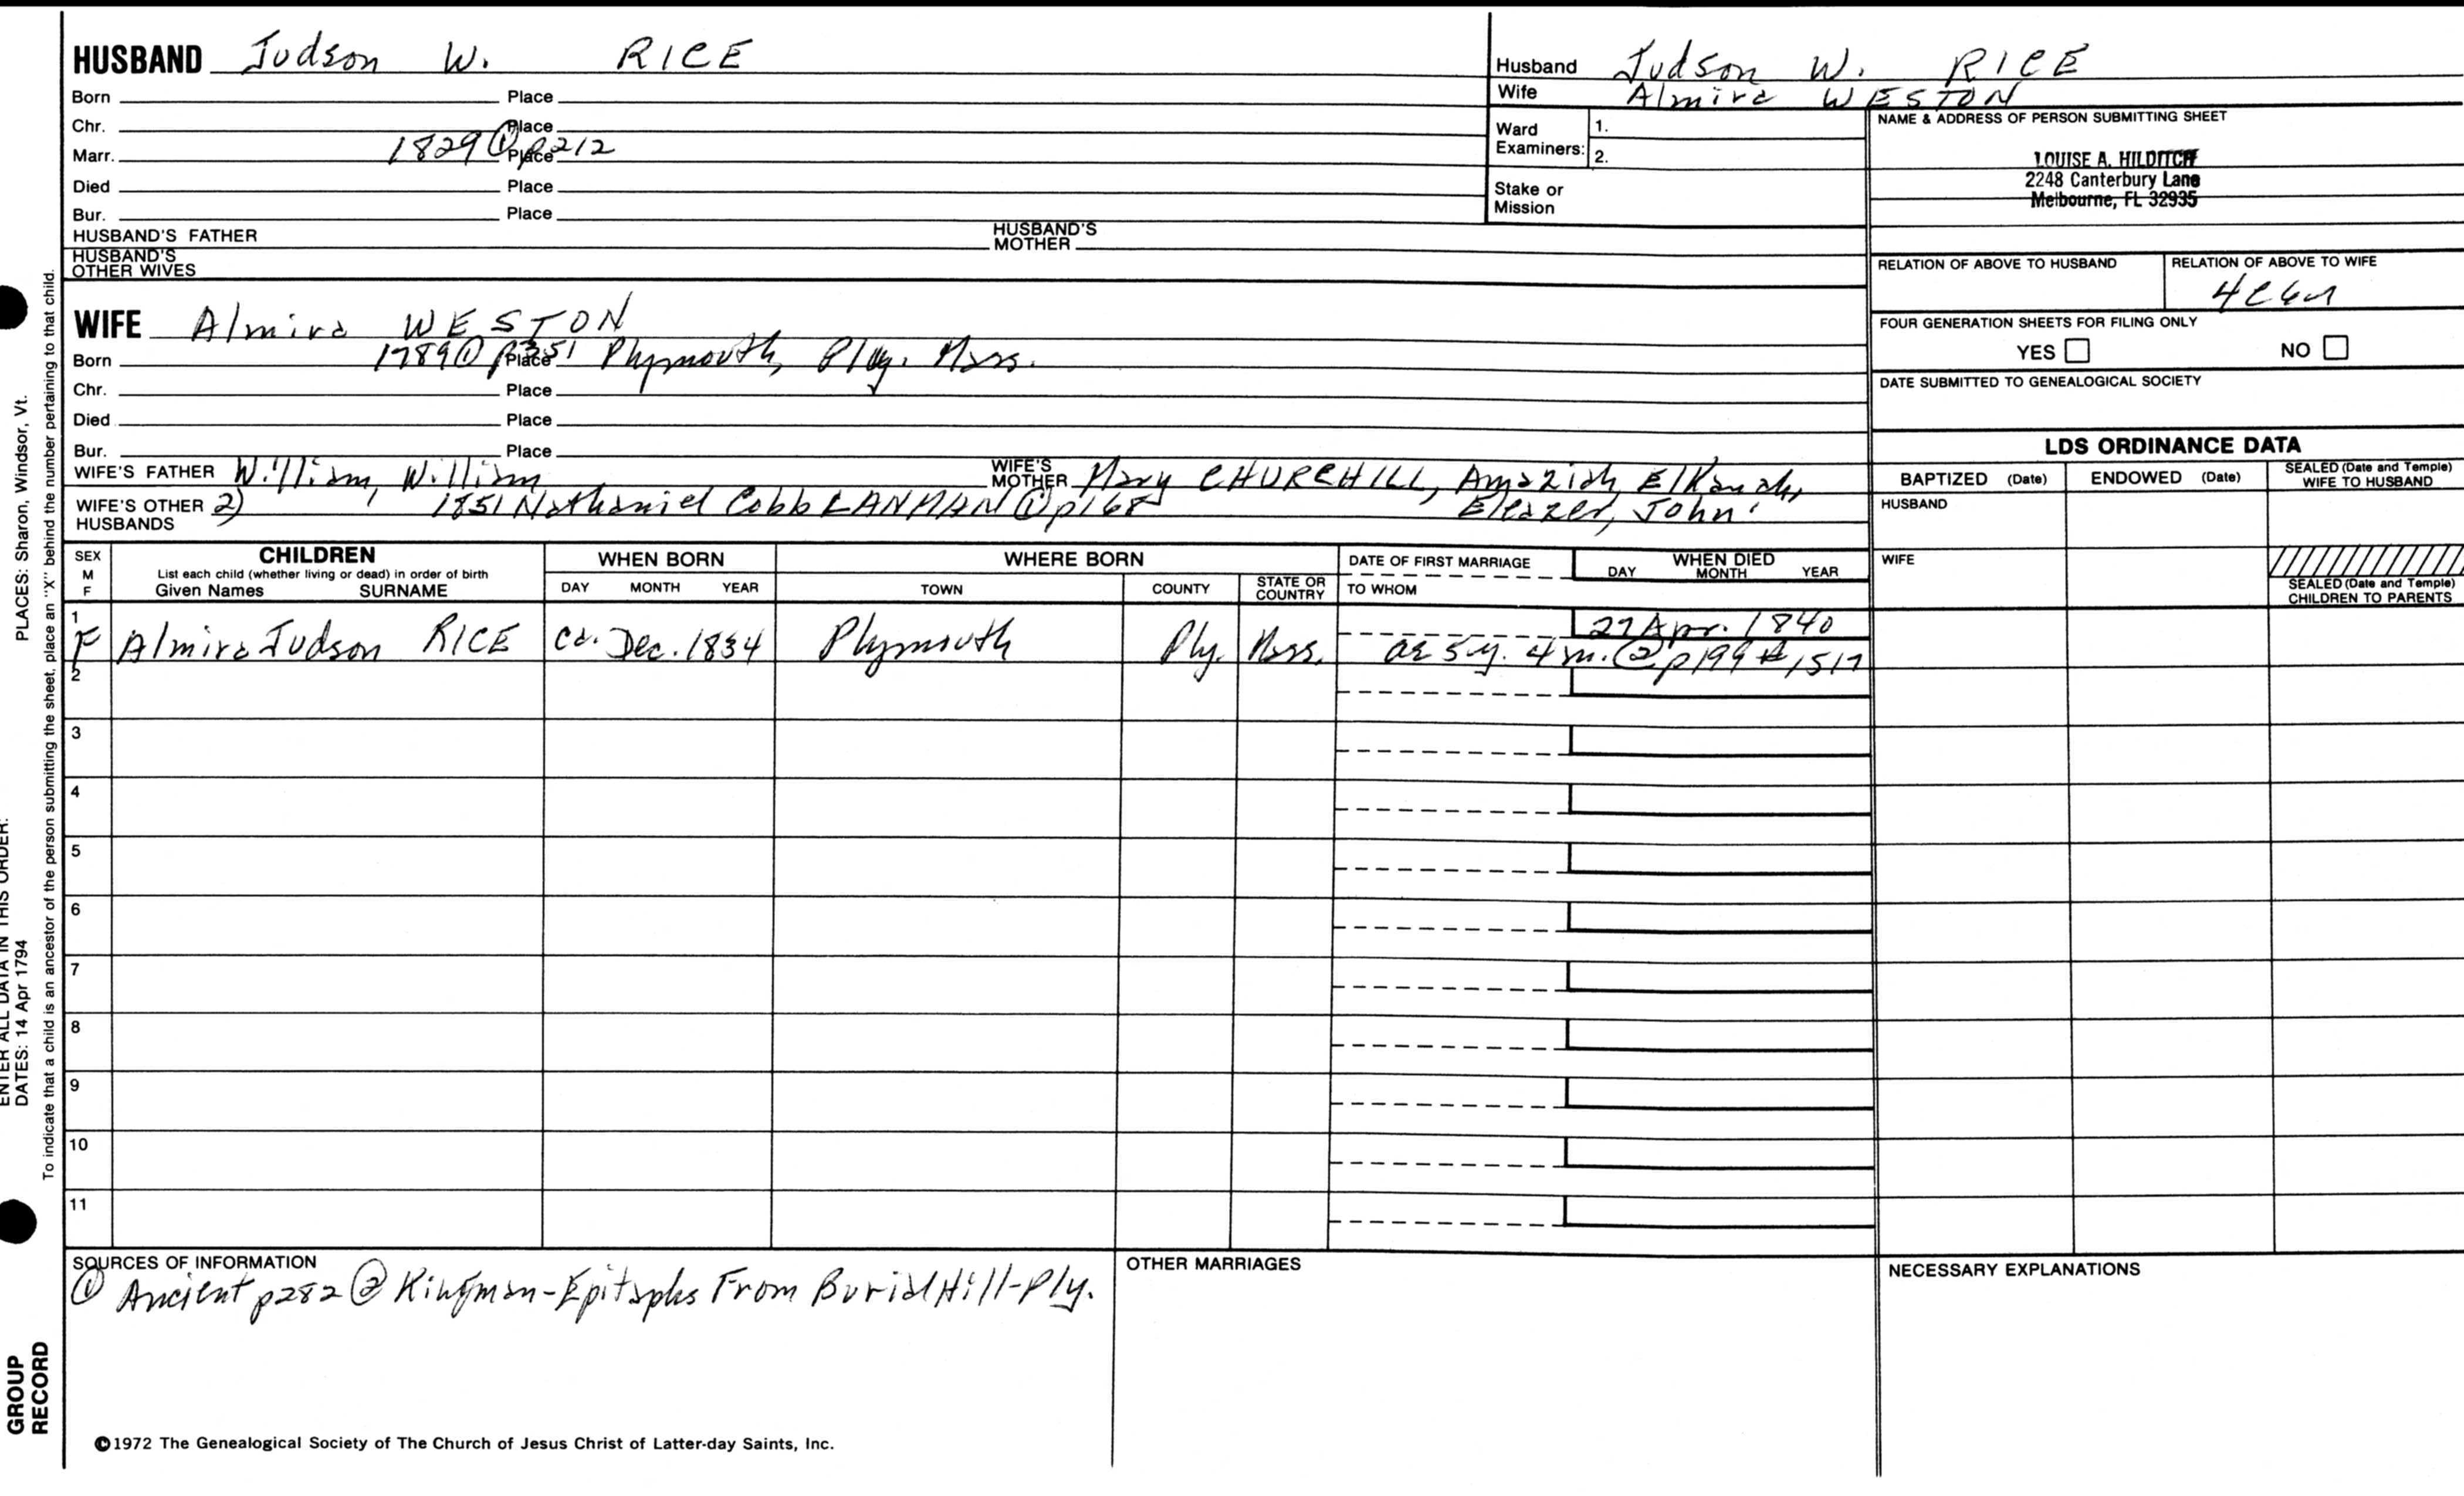 HUSBAND Judson W. RICE
Born Place
Chr. Place
Marr. 1829 ① p212 Place
Died Place
Bur. Place
HUSBAND'S FATHER HUSBAND'S MOTHER
HUSBAND'S OTHER WIVES
Husband Judson W. RICE
Wife Almira WESTON
Ward Examiners: 1.
2.
Stake or Mission
NAME & ADDRESS OF PERSON SUBMITTING SHEET
LOUISE A. HILDITCH
2248 Canterbury Lane
Melbourne, FL 32935
RELATION OF ABOVE TO HUSBAND RELATION OF ABOVE TO WIFE
FOUR GENERATION SHEETS FOR FILING ONLY
YES NO
DATE SUBMITTED TO GENEALOGICAL SOCIETY
WIFE Almira WESTON
Born 1789 ① Place Plymouth, Ply. Mass.
Chr. Place
Died Place
Bur. Place
WIFE'S FATHER William, William WIFE'S MOTHER Mary CHURCHILL, Amaziah, Elkanah,
Eleazer, John
WIFE'S OTHER HUSBANDS 2) 1851 Nathaniel Cobb LANMAN ① p168
LDS ORDINANCE DATA
BAPTIZED (Date) ENDOWED (Date) SEALED (Date and Temple) WIFE TO HUSBAND
HUSBAND
WIFE
SEALED (Date and Temple) CHILDREN TO PARENTS
SEX M F CHILDREN WHEN BORN WHERE BORN DATE OF FIRST MARRIAGE WHEN DIED
List each child (whether living or dead) in order of birth
Given Names SURNAME DAY MONTH YEAR TOWN COUNTY STATE OR COUNTRY TO WHOM DAY MONTH YEAR
1 27 Apr. 1840
F Almira Judson RICE ca. Dec. 1834 Plymouth Ply. Mass. ae 5 y. 4 m. ② p199 #1517
2
3
4
5
6
7
8
9
10
11
SOURCES OF INFORMATION
① Ancient p282 ② Kingman-Epitaphs From Burial Hill-Ply.
OTHER MARRIAGES
NECESSARY EXPLANATIONS
©1972 The Genealogical Society of The Church of Jesus Christ of Latter-day Saints, Inc.
ENTER ALL DATA IN THIS ORDER:
DATES: 14 Apr 1794 PLACES: Sharon, Windsor, Vt.
To indicate that a child is an ancestor of the person submitting the sheet, place an "X" behind the number pertaining to that child.
GROUP
RECORD